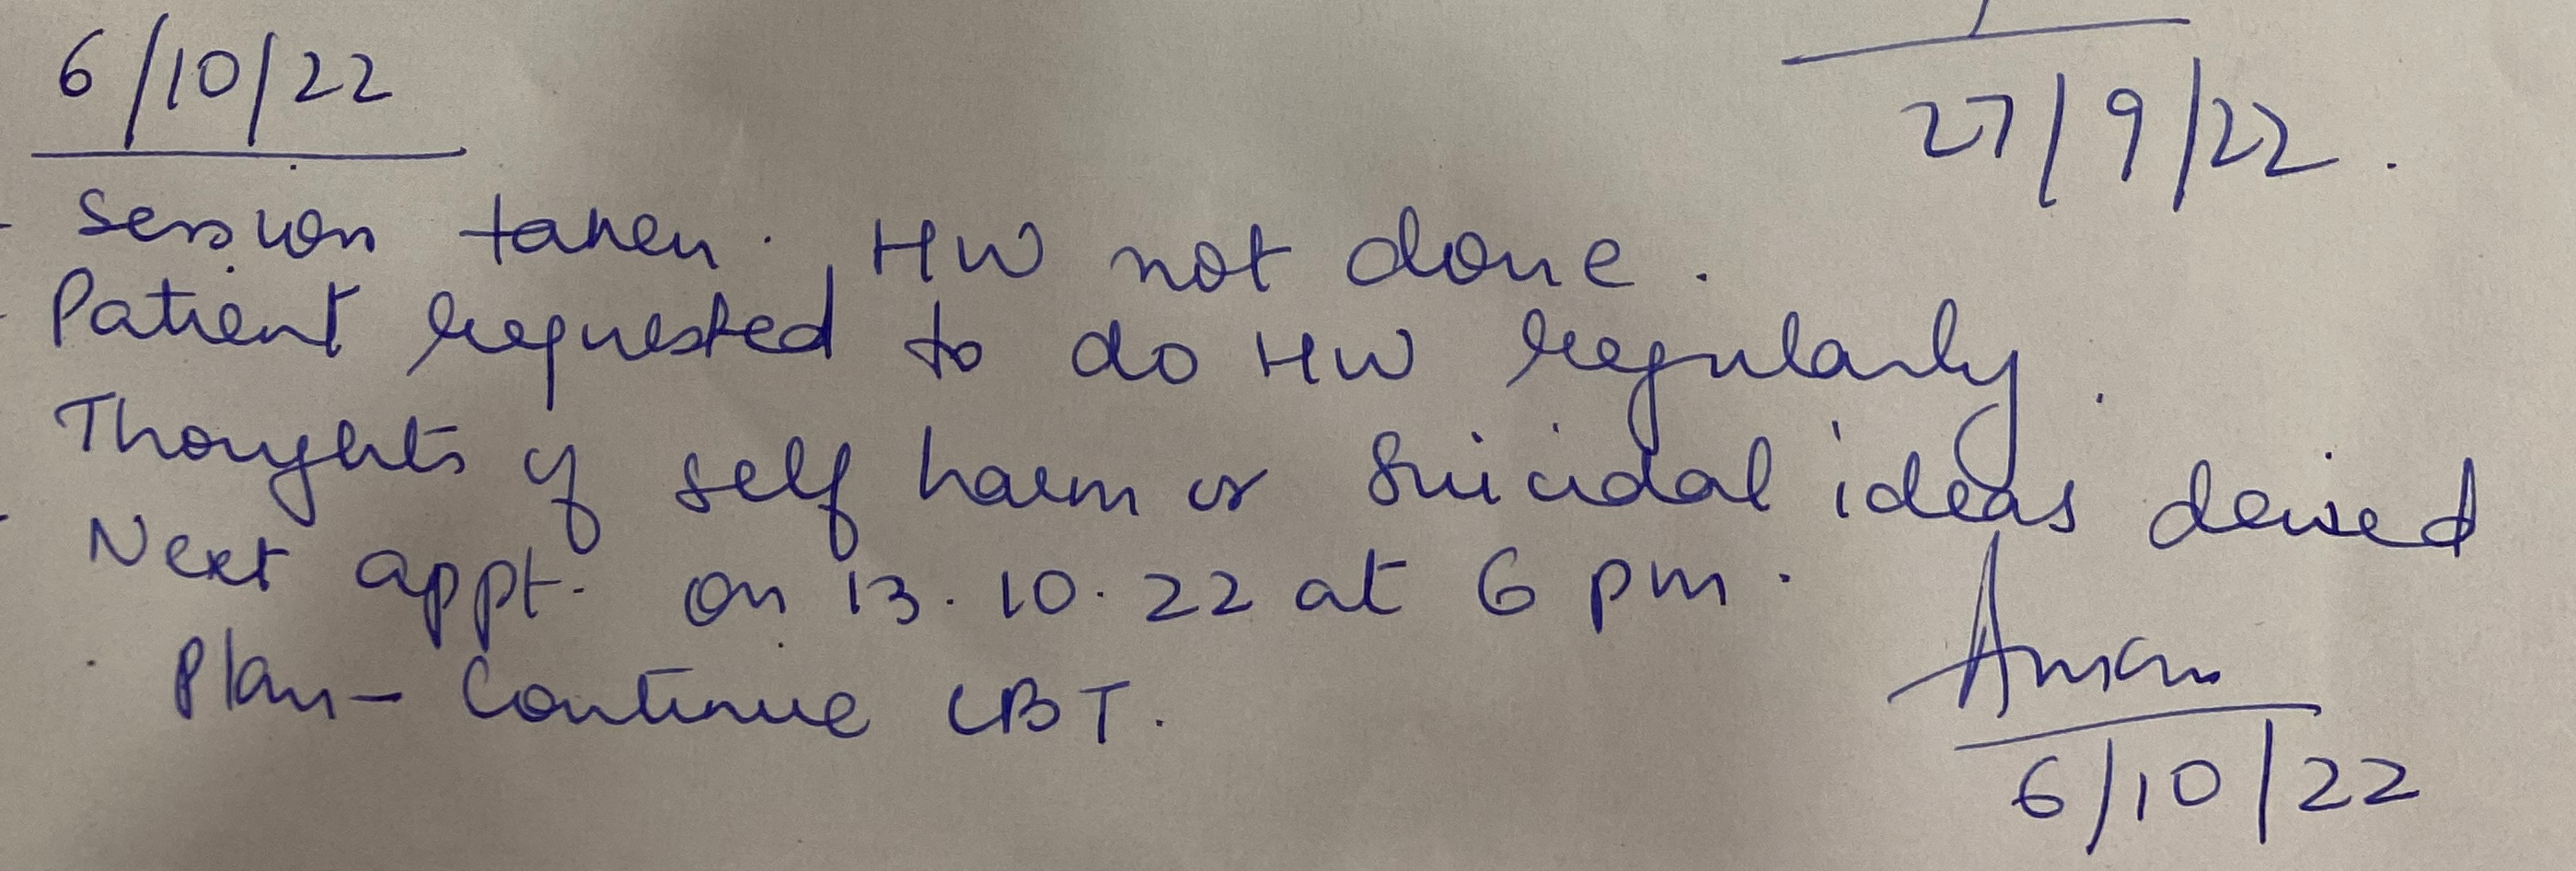 27/9/22.
6/10/22
- Session taken. HW not done.
- Patient requested to do HW regularly.
Thoughts of self harm or suicidal ideas denied
- Next appt. on 13.10.22 at 6 pm.
. Plan - Continue CBT.
6/10/22